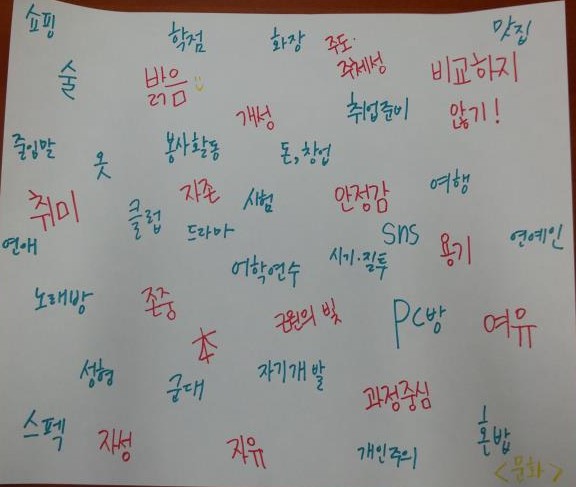 쇼핑
학점
화장
주도·
주체성
맛집
술
밝음
비교하지
않기!
개성
취업준비
줄임말
옷
봉사활동
돈, 창업
취미
클럽
자존
시험
안정감
여행
연애
드라마
SNS
연예인
어학연수
시기·질투
용기
노래방
존중
本
근원의 빛
PC방
여유
성형
군대
자기개발
과정중심
스펙
자성
자유
개인주의
혼밥
<문화>